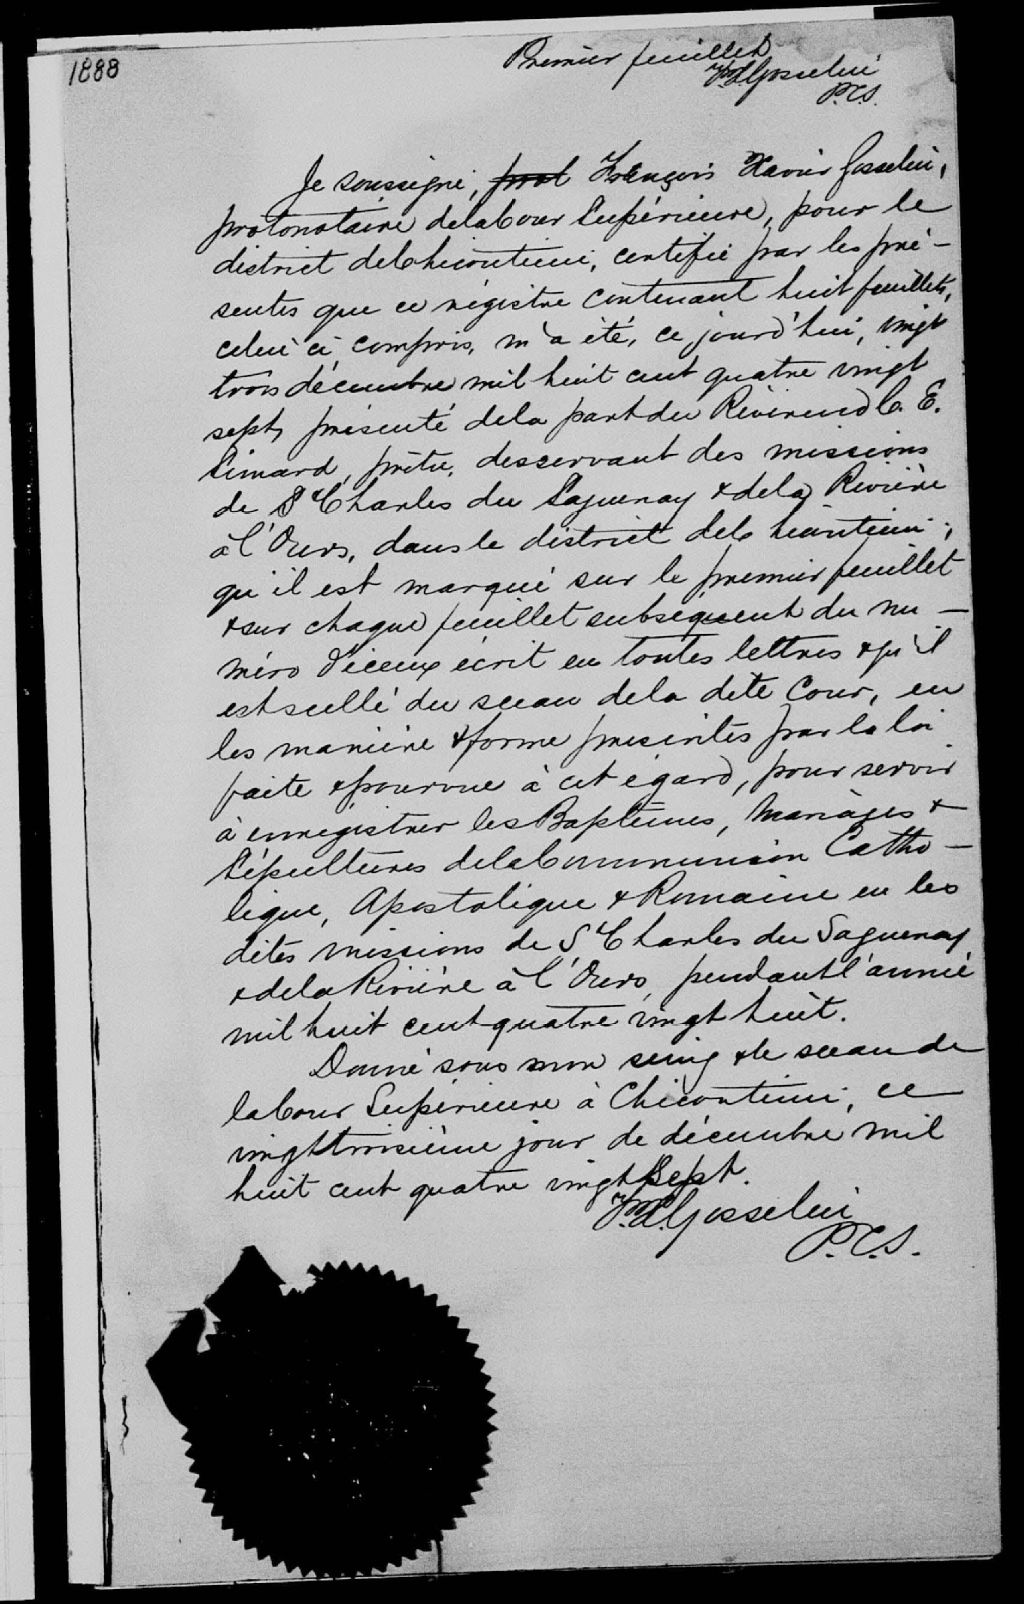 1888
Premier feuillet
F.X. Gosselin
P.C.S.
Je soussigné, prot François Xavier Gosselin,
protonotaire de la Cour Supérieure, pour le
district de Chicoutimi, certifie par les pré-
sentes que ce régistre contenant huit feuillets,
celui ci compris, m'a été, ce jourd'hui, vingt
trois décembre mil huit cent quatre vingt
sept, présenté de la part du Révérend C. E.
Simard, prêtre, desservant des missions
de St Charles du Saguenay & de la Rivière
à l'Ours, dans le district de Chicoutimi;
qu'il est marqué sur le premier feuillet
& sur chaque feuillet subséquent du nu-
méro d'iceux écrit en toutes lettres & qu'il
est scellé du sceau de la dite Cour, en
les manière & forme prescrites par la loi
faite & pourvue à cet égard, pour servir
à enrégistrer les Baptêmes, Mariages &
Sépultures de la Communion Catho-
lique, Apostolique & Romaine en les
dites missions de St Charles du Saguenay
& de la Rivière à l'Ours, pendant l'année
mil huit cent quatre vingt huit.
Donné sous mon seing & le sceau de
la Cour Supérieure à Chicoutimi, ce
vingt troisième jour de décembre mil
huit cent quatre vingt sept.
F.X. Gosselin
P.C.S.